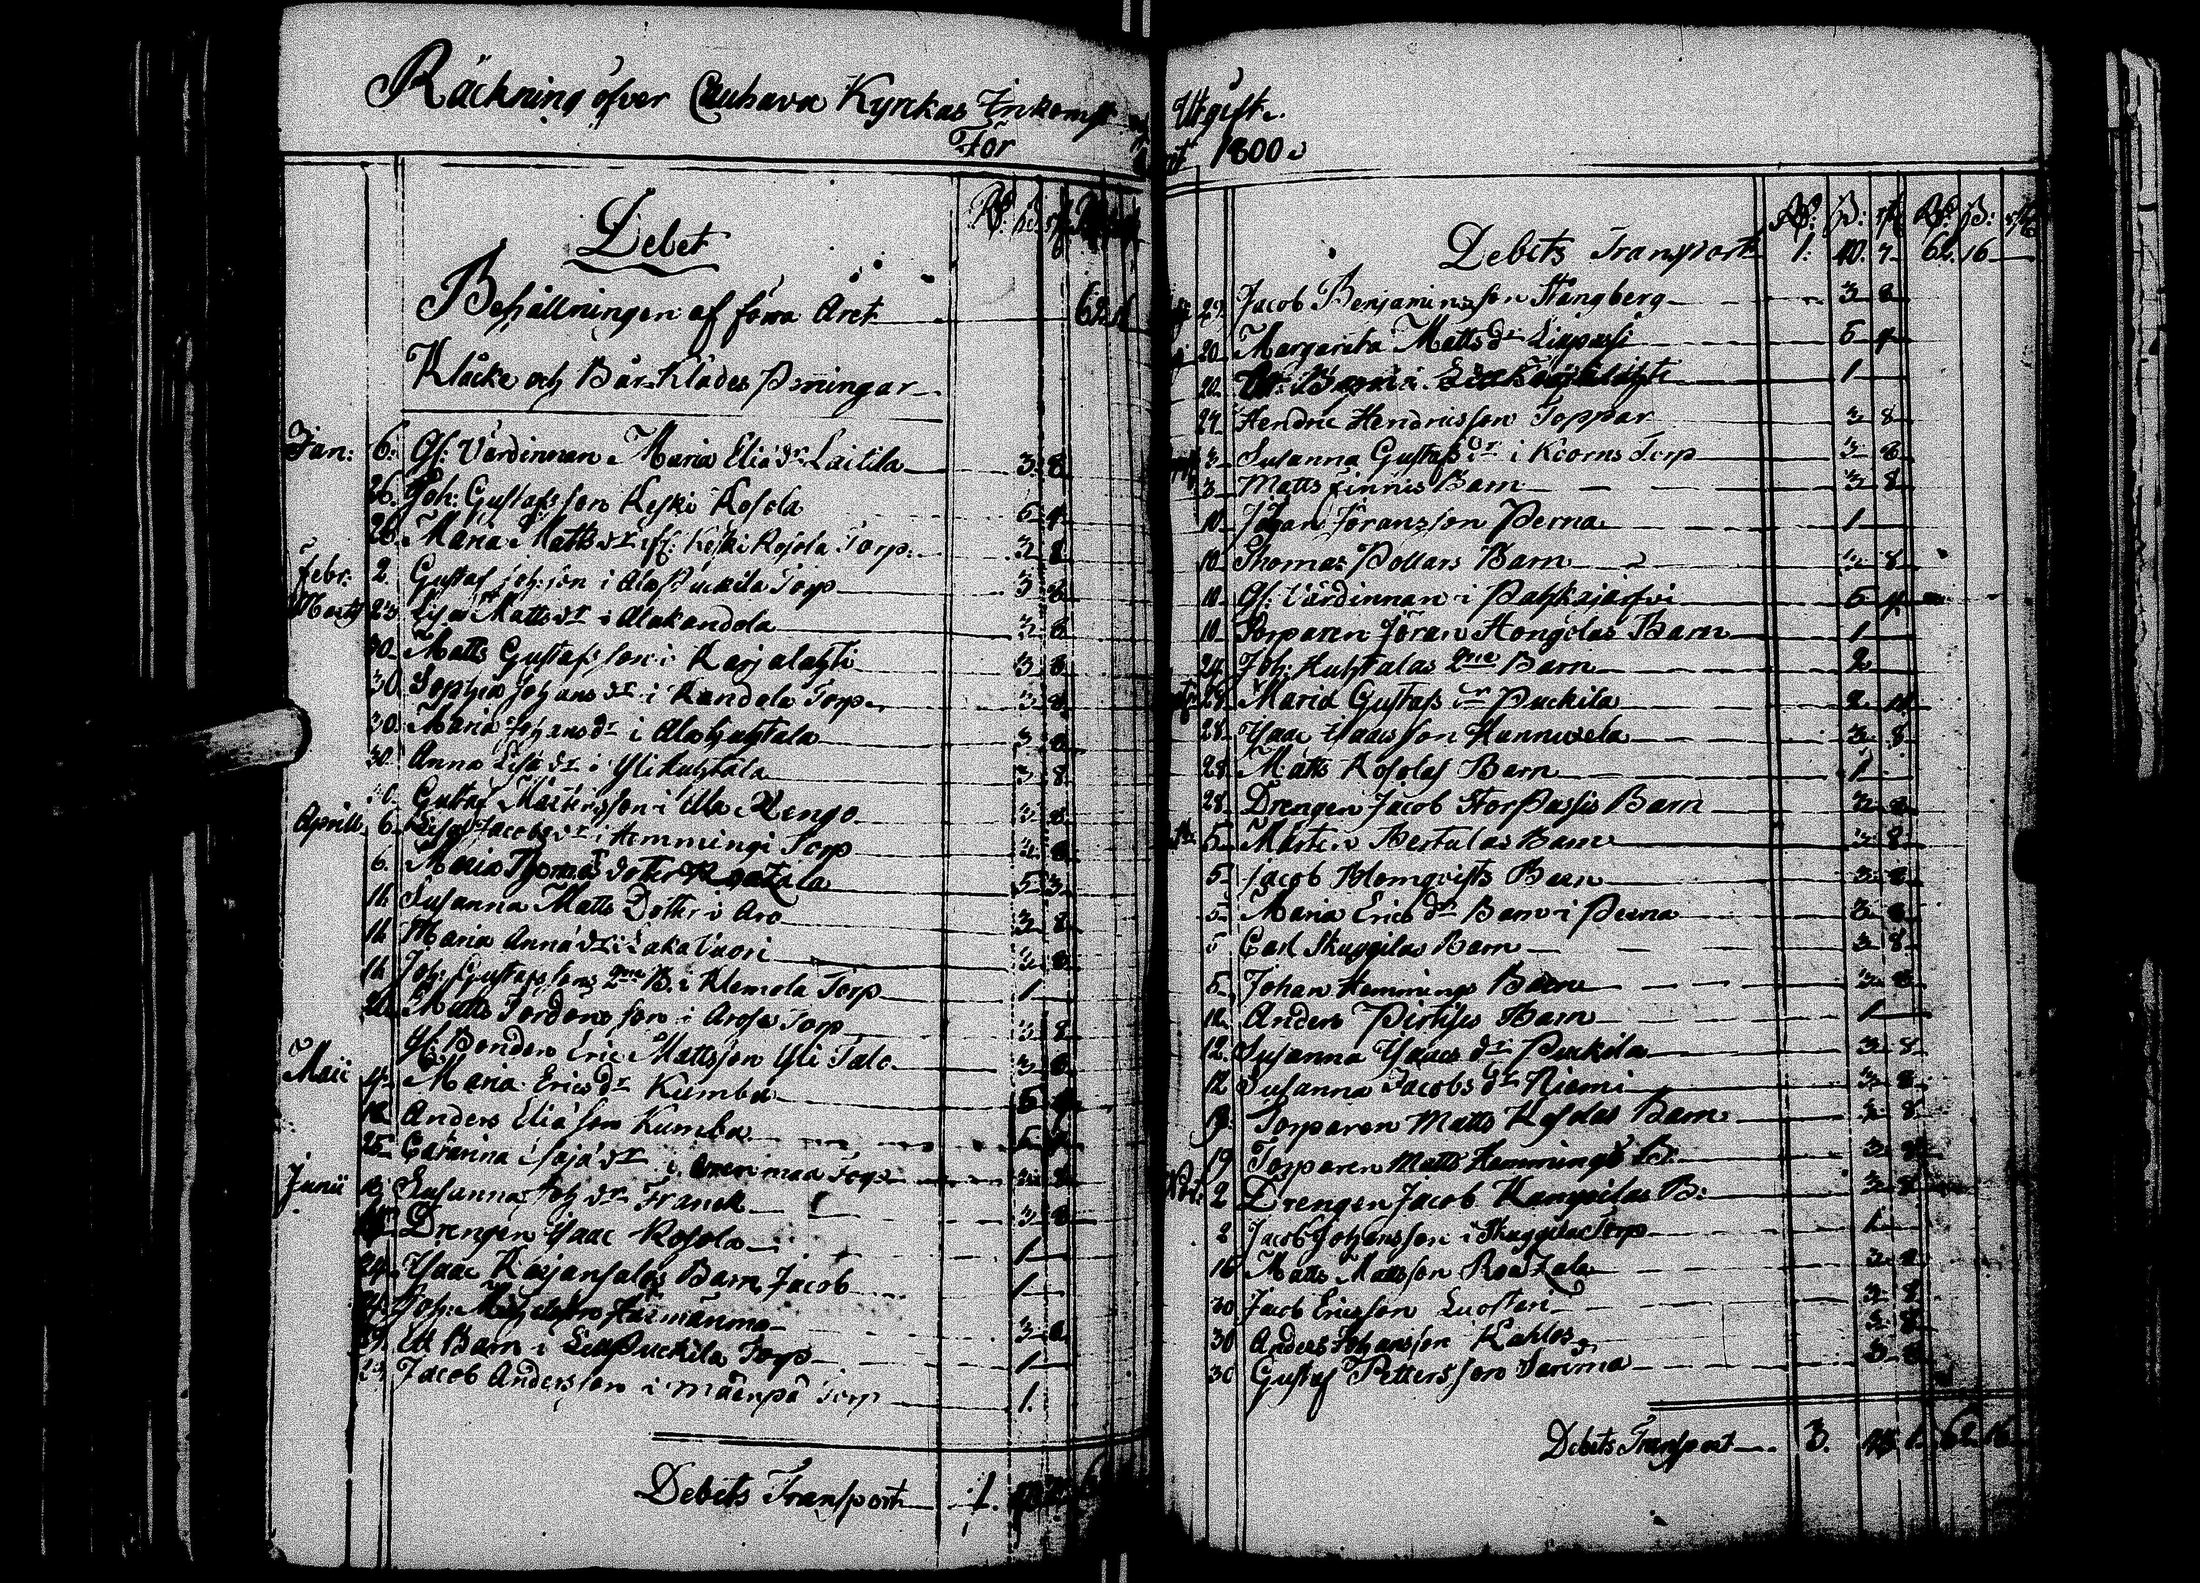 Räckning öfver Cauhava Kyrkas Inkomst
För
Debet
Behållningen af förra Året 62
Klåcke och Bår-Klädes Penningar
Jan: 6. Gl: Värdinnan Maria Eliædr Laitila 3. 8.
26. Joh: Gustafsson Keski Kosola 5. 4.
26. Maria Mattsdr Keski Kosola Torp. 3. 8.
Febr: 2. Gustaf Joh:son i Ala Puckila Torp 3. 8.
Martii 23. Lisa Mattsdr i Alakandola 3. 8.
30. Matts Gustafsson i Karjalahti 3. 8.
30. Sophia Johansdr i Kandola Torp 3. 8.
30. Maria Johansdr i Alahuhtala 3. 8.
30. Anna Lisa dr i Ylihuhtala 3. 8.
Gustaf Mårtensson i Ala Rengo 3. 8.
Aprill 6. Lisa Jacobsdr i Hemmingi Torp 3. 8.
6. Maria Thomæ dotter Roazala 5. 3.
Susanna Matts Dotter i Aro 3. 8.
Maria Anna dr i Lakavuori 3. 8.
Joh: Gustafssons 2ne B. i Klemola Torp 1.
20. Matts i Torp 3. 8.
Gl: Bonden Eric Mattsson Yli Talo 3. 8.
Maii 4. Maria Ericsdr Kumba 5. 4.
18. Anders Eliæson Kumba
25. Catarina dr i Torp 3. 8.
Junii Susanna Joh dr Franck 3. 8.
Drengen Isaac Kosola 1.
24. Isaac Karjansalos Barn Jacob 1.
Joh: 3. 8.
Ett Barn i Puckila Torp 1.
Jacob Andersson i Mäenpä Torp 1.
Debets Transport 1.
Utgift.
1800.
Rd: ß: rst: Rd: ß: rst:
Debets Transport 1: 40. 7. 62. 16
29. Jacob Benjaminsson Stangberg 3 8
20. Margareta Matts dr 5 4
20. 1
27. Hendric Hendricsson Toppar 3 8
3. Susanna Gustafs dr i Kcorns Torp 3 8
3. Matts Finnis Barn 3 8
10. Johan Jöransson Perna 1
10. Thomas Pollars Barn 3 8
10. Gl: Värdinnan i Pahkajärfvi 5 4
10. Torparen Jöran Hongolas Barn 1
24. Joh: Huhtalas 2ne Barn 2
28. Maria Gustafs dr Puckila
28. Isaac Isaacsson Hannuxela 3 8
28. Matts Kosolas Barn 1
28. Drengen Jacob Barn 3 8
5. Mårten Bertulas Barn 3 8
5. Jacob Blomqvists Barn 3 8
5. Maria Erics dr Barn i Perna 3 8
5 Carl Skuggilas Barn 3 8
5. Johan Hemmings Barn 3 8
12. Anders Barn 1
12. Susanna Isaacs dr Puckila 3 8
12 Susanna Jacobs dr Niemi 3 8
Torparen Matts Barn 3 8
19 Torparen Matts Hemmings B: 3 8
2 Drengen Jacob B: 3 8
2 Jacob Johansson i Skuggila Torp 1
16 Matts Mattsson Roazala 3 8
30 Jacob Ericsson Luostari 3 8
30 Anders Johansson 3 8
30 Gustaf Pettersson 3 8
Debets Transport 3. 62 16